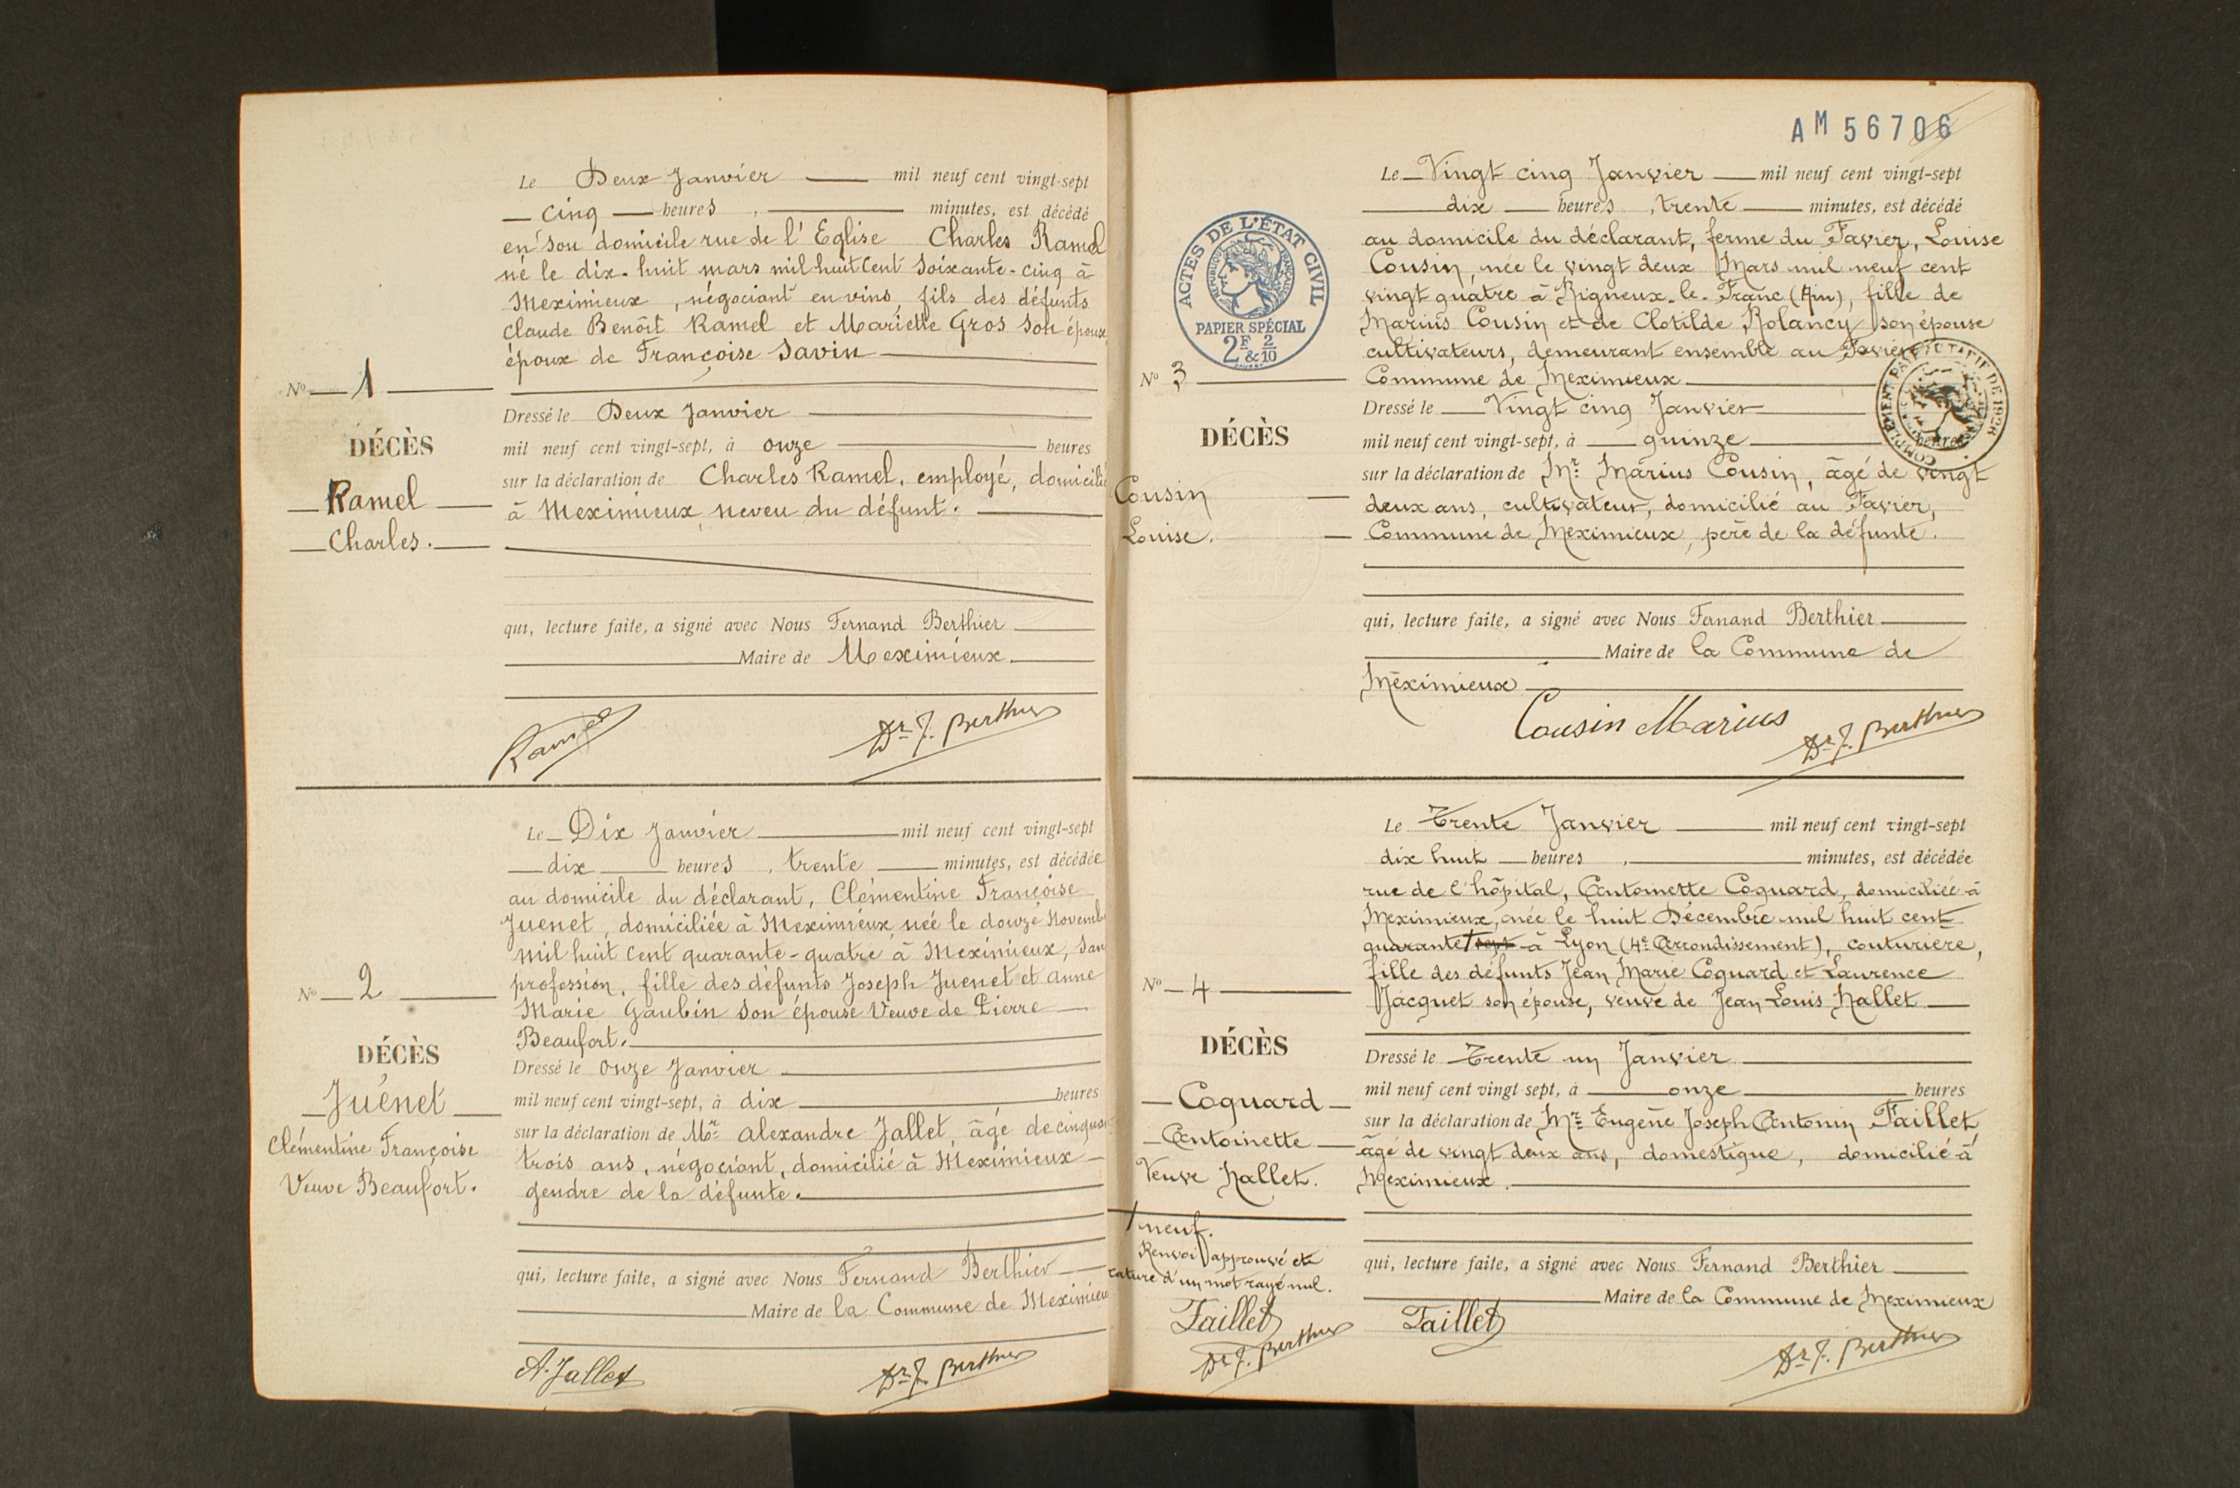 Le Deux Janvier mil neuf cent vingt-sept
cinq heures, minutes, est décédé
en son domicile rue de l'Eglise Charles Ramel
né le dix-huit mars mil huit cent soixante-cinq à
Meximieux, négociant en vins, fils des défunts
Claude Benoît Ramel et Mariette Gros son épouse,
époux de Françoise Savin
No 1
DÉCÈS
Ramel
Charles.
Dressé le Deux Janvier
mil neuf cent vingt-sept, à onze heures
sur la déclaration de Charles Ramel, employé, domicilié
à Meximieux, neveu du défunt.
qui, lecture faite, a signé avec Nous Fernand Berthier
Maire de Meximieux
Ramel
Dr F. Berthier
Le Dix Janvier mil neuf cent vingt-sept
dix heures, trente minutes, est décédée
au domicile du déclarant, Clémentine Françoise
Juenet, domiciliée à Meximieux, née le douze Novemb
mil huit cent quarante-quatre à Meximieux, san
profession, fille des défunts Joseph Juenet et Anne
Marie Gaubin son épouse Veuve de Pierre
Beaufort.
No 2
DÉCÈS
Juénet
Clémentine Françoise
Veuve Beaufort.
Dressé le onze Janvier
mil neuf cent vingt-sept, à dix heures
sur la déclaration de Mr Alexandre Jallet, âgé de cinquan
trois ans, négociant, domicilié à Meximieux
gendre de la défunte.
qui, lecture faite, a signé avec Nous Fernand Berthier
Maire de la Commune de Meximieu
A. Jallet
Dr F. Berthier
AM 56706
ACTES DE L'ÉTAT CIVIL
RÉPUBLIQUE FRANÇAISE
PAPIER SPÉCIAL
2F & 2/10
Le Vingt cinq Janvier mil neuf cent vingt-sept
dix heures, trente minutes, est décédé
au domicile du déclarant, ferme du Favier, Louise
Cousin, née le vingt deux Mars mil neuf cent
vingt quatre à Rigneux-le-Franc (Ain), fille de
Marius Cousin et de Clotilde Rolancy son épouse
cultivateurs, demeurant ensemble au Favier
Commune de Meximieux
No 3
DÉCÈS
Cousin
Louise.
Dressé le Vingt cinq Janvier
mil neuf cent vingt-sept, à quinze heures
sur la déclaration de Mr Marius Cousin, âgé de vingt
deux ans, cultivateur, domicilié au Favier,
Commune de Meximieux, père de la défunte.
qui, lecture faite, a signé avec Nous Fernand Berthier
Maire de la Commune de
Meximieux
Cousin Marius
Dr F. Berthier
Le Trente Janvier mil neuf cent vingt-sept
dix huit heures, minutes, est décédée
rue de l'hôpital, Antoinette Coquard, domiciliée à
Meximieux, née le huit Décembre mil huit cent
quarante sept à Lyon (4e Arrondissement), couturière,
fille des défunts Jean Marie Coquard et Laurence
Jacquet son épouse, veuve de Jean Louis Nallet
No 4
DÉCÈS
Coquard
Antoinette
Veuve Nallet.
neuf.
Renvoi approuvé et
rature d'un mot rayé nul.
Taillet
Dr F. Berthier
Dressé le Trente un Janvier
mil neuf cent vingt sept, à onze heures
sur la déclaration de Mr Eugène Joseph Antonin Taillet
âgé de vingt deux ans, domestique, domicilié à
Meximieux.
qui, lecture faite, a signé avec Nous Fernand Berthier
Maire de la Commune de Meximieux
Taillet
Dr F. Berthier